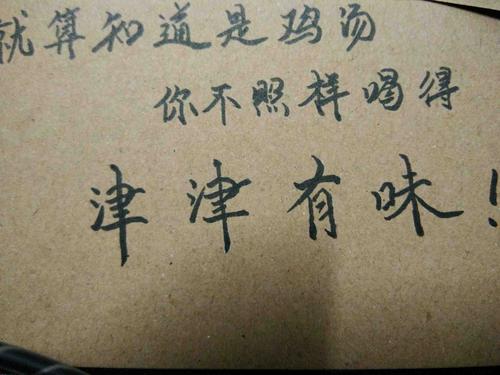 就算知道是鸡汤
你不照样喝得
津津有味！